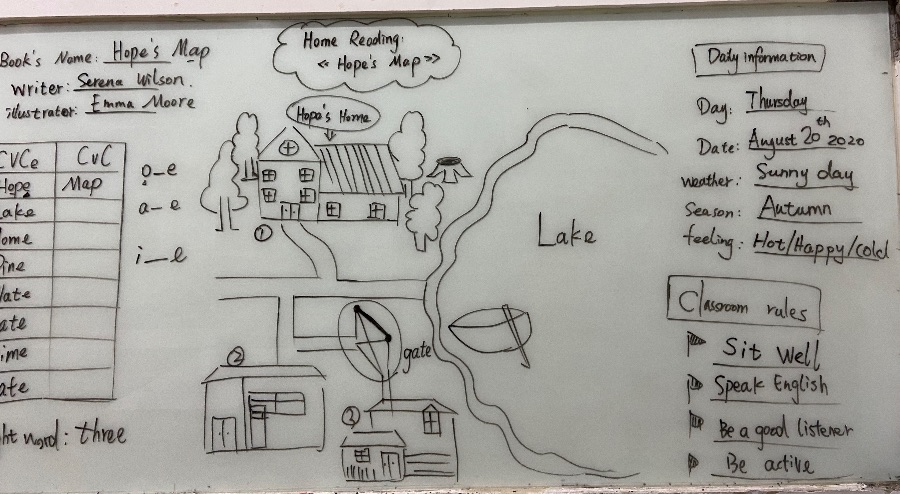 Book's Name: Hope's Map
Writer: Serena Wilson.
illustrator: Emma Moore
CVCe CVC
Hope Map
Lake
ome
ine
ate
ate
ime
ate
o_e
a_e
i_e
ht word: three
Home Reading:
<< Hope's Map >>
Hope's Home
①
②
③
gate
Lake
Daily information
Day: Thursday
Date: August 20th 2020
weather: Sunny day
Season: Autumn
feeling: Hot/Happy/Cold
Classroom rules
Sit Well
Speak English
Be a good listener
Be active